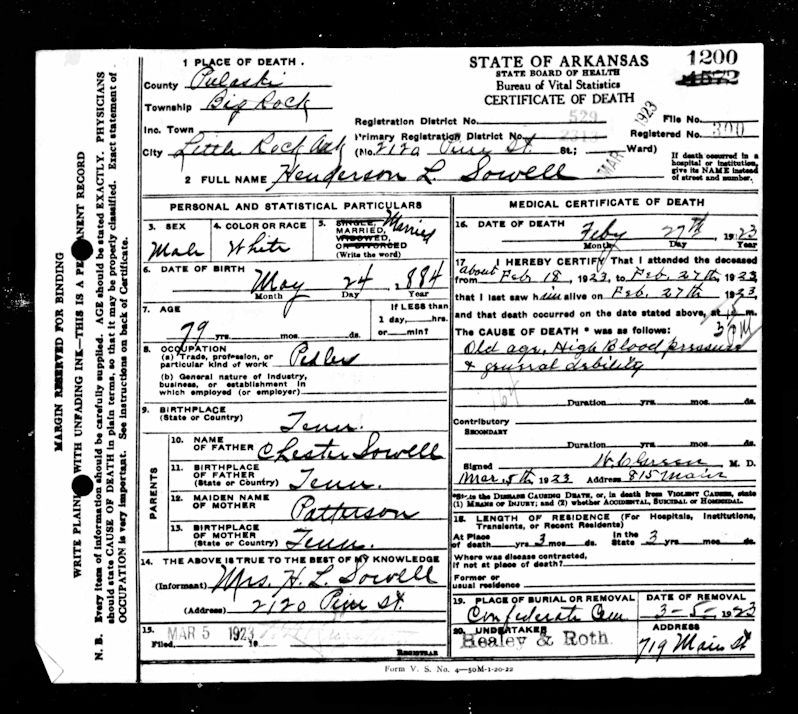 1 PLACE OF DEATH.
County Pulaski
Township Big Rock
Inc. Town
City Little Rock Ark
STATE OF ARKANSAS
STATE BOARD OF HEALTH
Bureau of Vital Statistics
CERTIFICATE OF DEATH
1200
4572
Registration District No. 529
File No.
Primary Registration District No. 2313
Registered No. 300
MAR 1923
(No. 2120 Pine St. St.; Ward)
If death occurred in a hospital or institution, give its NAME instead of street and number.
2 FULL NAME Henderson L. Sowell
PERSONAL AND STATISTICAL PARTICULARS
3. SEX
Male
4. COLOR OR RACE
White
5. SINGLE, MARRIED, WIDOWED, OR DIVORCED (Write the word)
Married
6. DATE OF BIRTH
May 24, 1884
Month Day Year
7. AGE
79 yrs. mos. ds.
If LESS than 1 day, hrs. or min?
8. OCCUPATION
(a) Trade, profession, or particular kind of work Pedler
(b) General nature of industry, business, or establishment in which employed (or employer)
9. BIRTHPLACE
(State or Country) Tenn.
PARENTS
10. NAME OF FATHER Chester Sowell
11. BIRTHPLACE OF FATHER (State or Country) Tenn.
12. MAIDEN NAME OF MOTHER Patterson
13. BIRTHPLACE OF MOTHER (State or Country) Tenn.
14. THE ABOVE IS TRUE TO THE BEST OF MY KNOWLEDGE
(Informant) Mrs. H. L. Sowell
(Address) 2120 Pine St.
15.
Filed MAR 5 1923 19
REGISTRAR
MEDICAL CERTIFICATE OF DEATH
16. DATE OF DEATH Feby 27th, 1923
Month Day Year
17 I HEREBY CERTIFY That I attended the deceased
from about Feb 18, 1923, to Feb. 27th, 1923,
that I last saw him alive on Feb. 27th, 1923,
and that death occurred on the date stated above, at m.
3 PM
The CAUSE OF DEATH * was as follows:
Old age, High Blood pressure
& general debility
164
Duration yrs. mos. ds.
Contributory
SECONDARY
Duration yrs. mos. ds.
Signed M. D.
Mar. 5th, 1923 Address 815 Main
*State the DISEASE CAUSING DEATH, or, in death from VIOLENT CAUSES, state (1) MEANS OF INJURY; and (2) whether ACCIDENTAL, SUICIDAL or HOMICIDAL.
18. LENGTH OF RESIDENCE (For Hospitals, Institutions, Transients, or Recent Residents)
At Place of death yrs. 3 mos. ds. In the State 3 yrs. mos. ds.
Where was disease contracted, if not at place of death?
Former or usual residence
19. PLACE OF BURIAL OR REMOVAL
Confederate Cem
DATE OF REMOVAL
3-5-1923
20. UNDERTAKER
Healey & Roth.
ADDRESS
719 Main St
Form V. S. No. 4—50M-1-20-22
MARGIN RESERVED FOR BINDING
WRITE PLAINLY WITH UNFADING INK—THIS IS A PERMANENT RECORD
N. B. Every item of information should be carefully supplied. AGE should be stated EXACTLY. PHYSICIANS
should state CAUSE OF DEATH in plain terms, so that it may be properly classified. Exact statement of
OCCUPATION is very important. See instructions on back of Certificate.